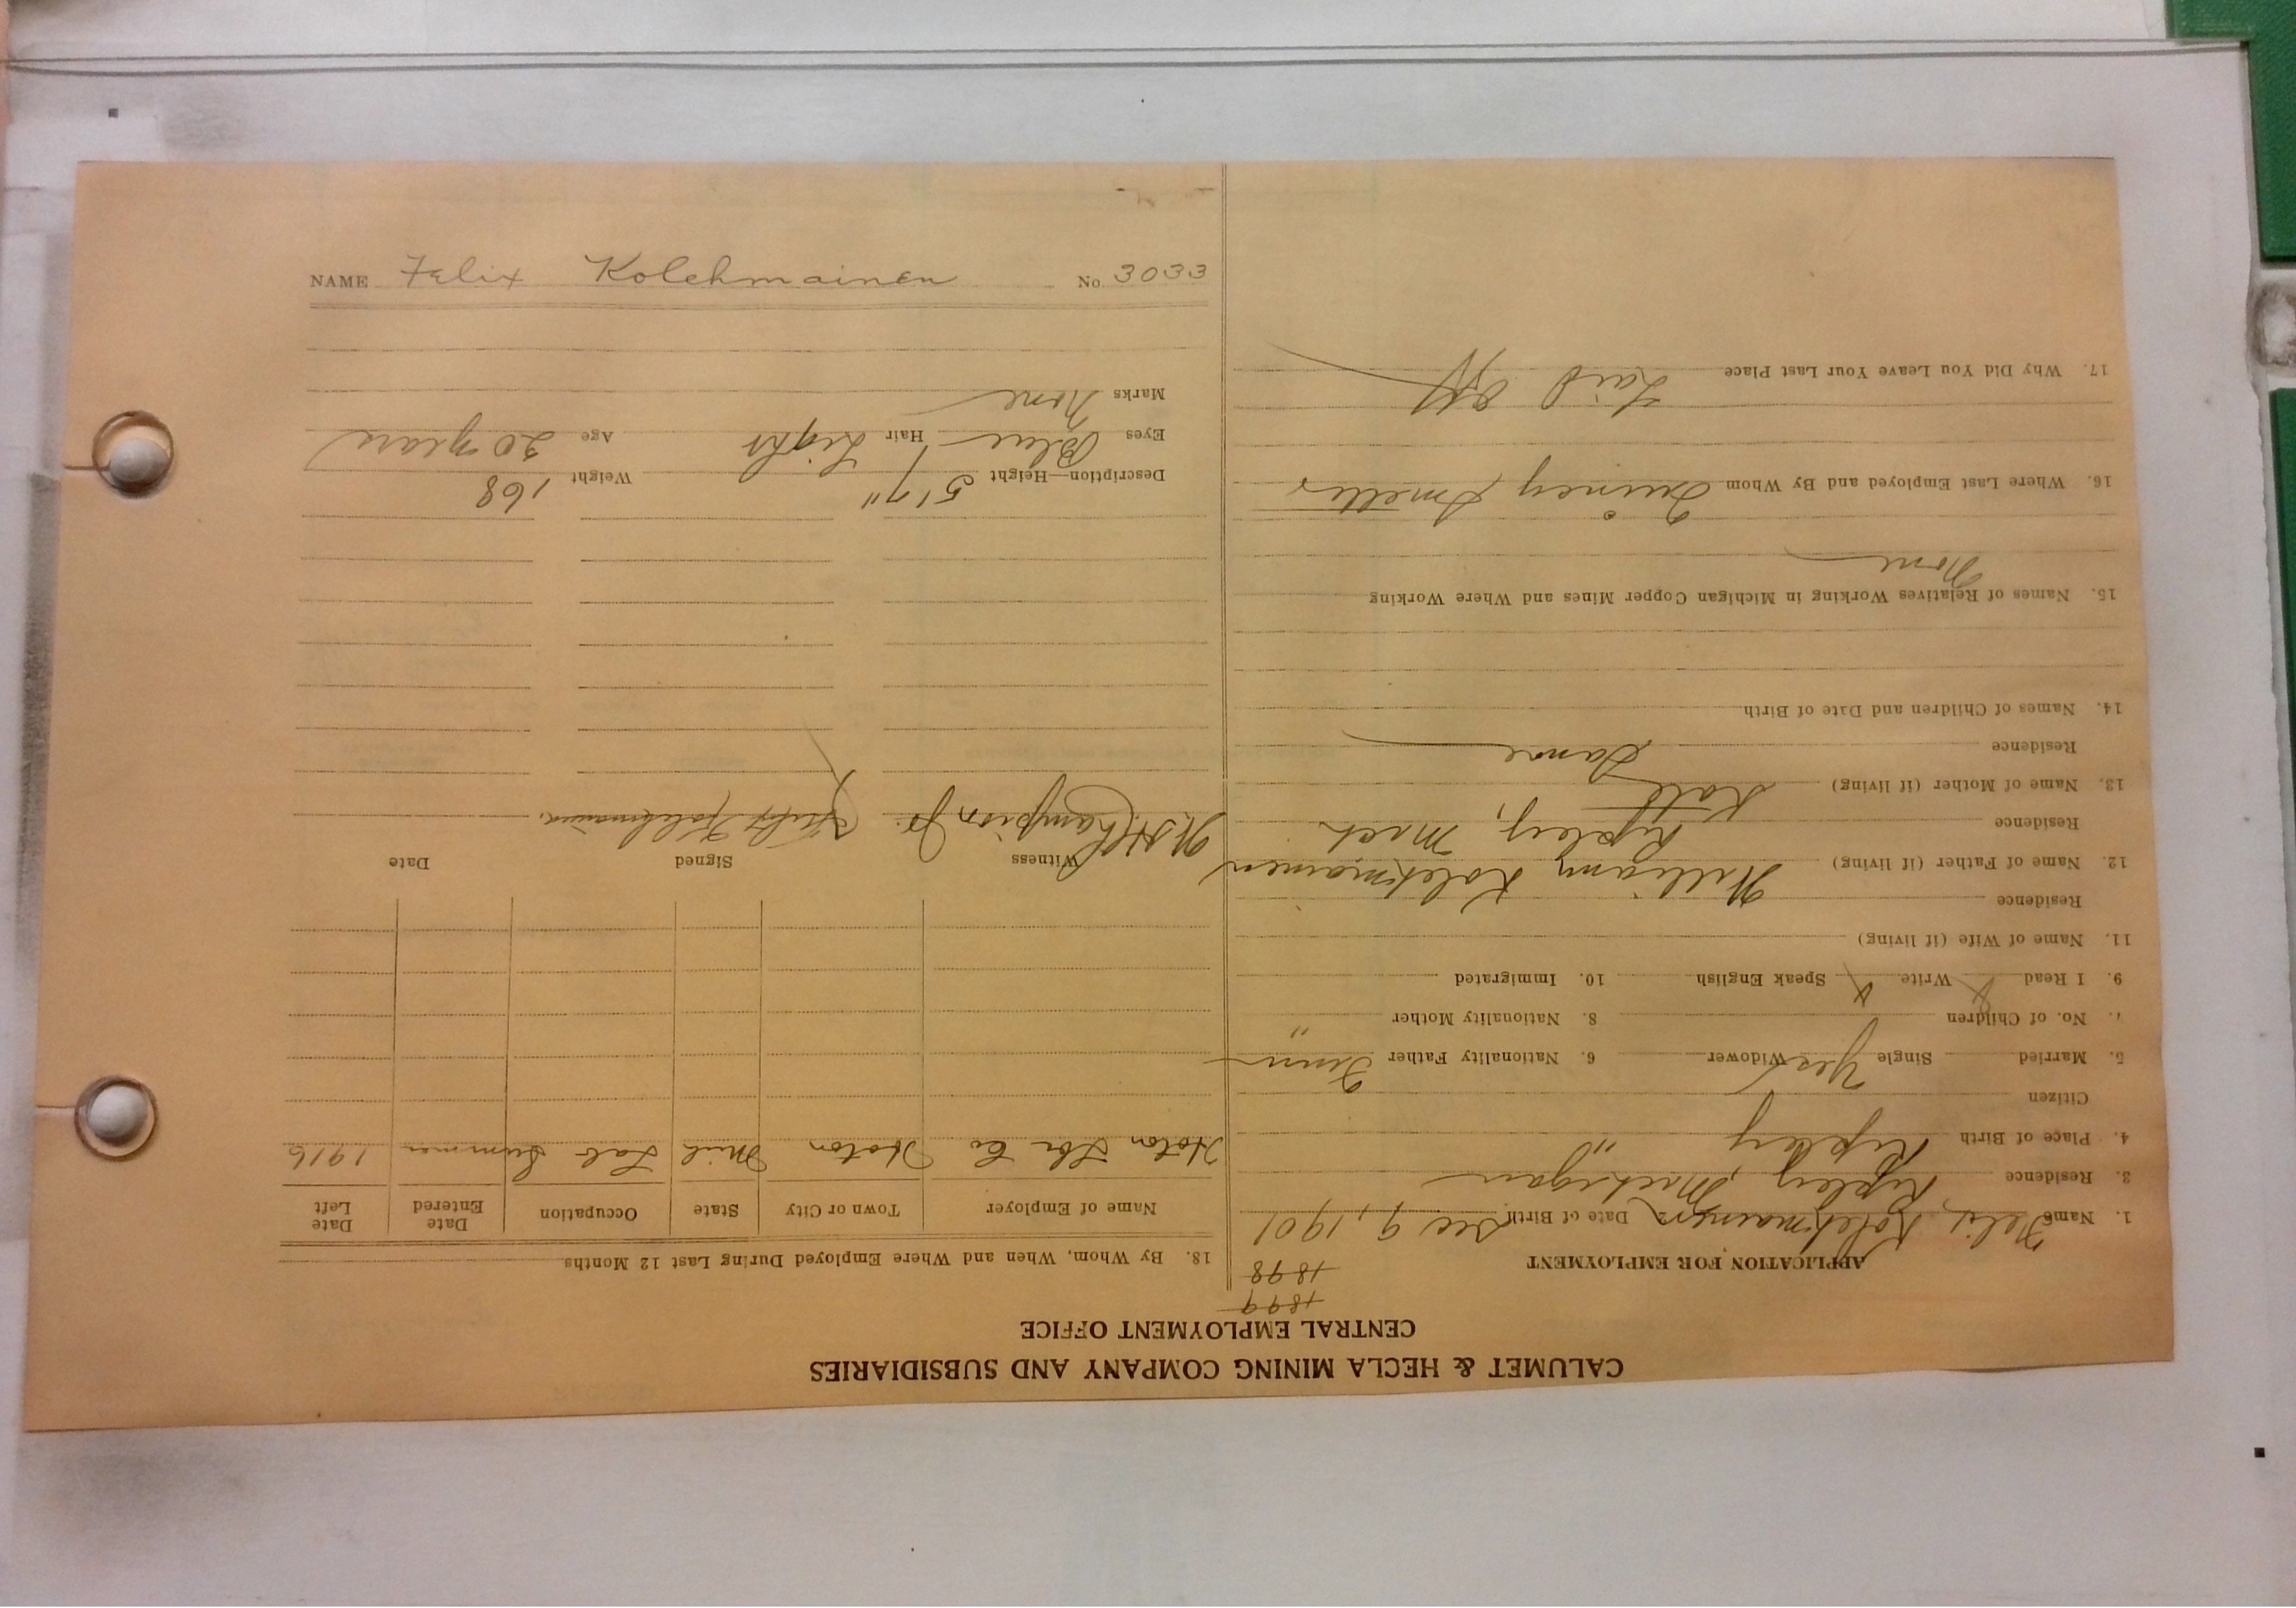 CALUMET & HECLA MINING COMPANY AND SUBSIDIARIES
CENTRAL EMPLOYMENT OFFICE
1899
1898
APPLICATION FOR EMPLOYMENT
1. Name Felix Kolehmainen 2. Date of Birth Dec 9, 1901
3. Residence Ripley, Michigan
4. Place of Birth Ripley "
Citizen
5. Married Single Yes Widower 6. Nationality Father Finn
7. No. of Children 8. Nationality Mother "
9. I Read X Write X Speak English 10. Immigrated
11. Name of Wife (if living)
Residence
12. Name of Father (if living) William Kolehmainen
Residence Ripley, Mich
13. Name of Mother (if living) Kate
Residence Same
14. Names of Children and Date of Birth
15. Names of Relatives Working in Michigan Copper Mines and Where Working
None
16. Where Last Employed and By Whom Quincy Smelter
17. Why Did You Leave Your Last Place Laid Off
18. By Whom, When and Where Employed During Last 12 Months
Name of Employer Town or City State Occupation Date Entered Date Left
Hoton Co Hoton Mich Lab Summer 1916
Witness Signed Date
W. H. Champion Jr. Felix Kolehmainen
Description—Height 5'7" Weight 168
Eyes Blue Hair Light Age 20 years
Marks None
NAME Felix Kolehmainen No. 3033